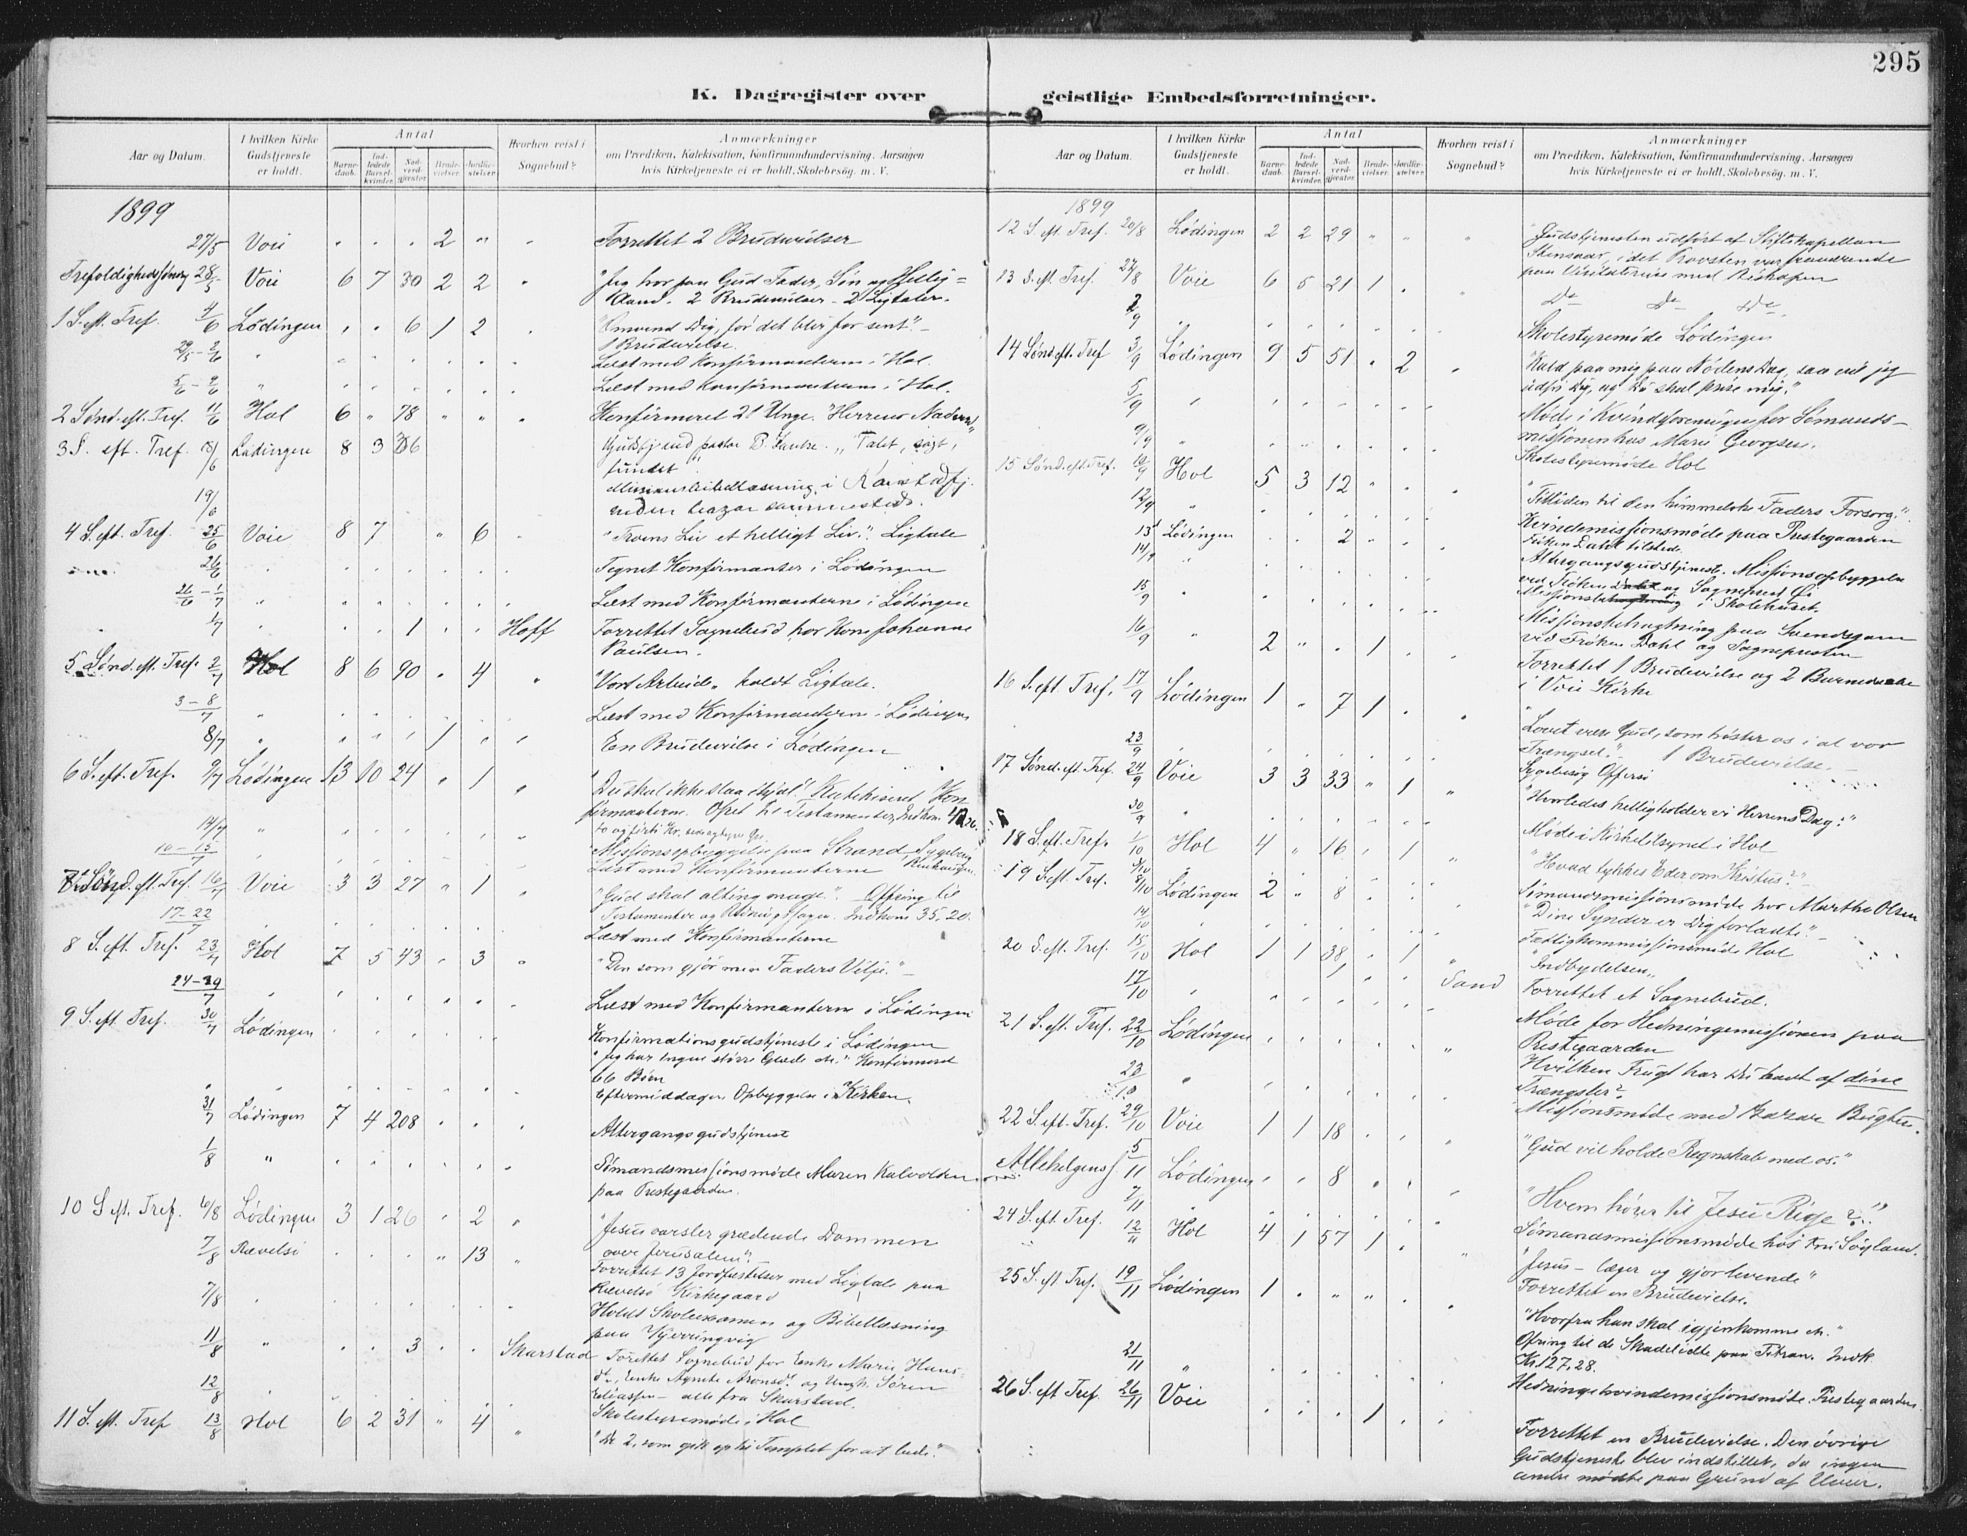 295
K. Dagregister over geistlige Embedsforretninger.
Aar og Datum.
I hvilken Kirke Gudstjeneste er holdt.
Antal
Barnedaab.
Indledede Barselkvinder.
Nadverdgjester.
Brudevielser.
Jordfæstelser.
Hvorhen reist i Sognebud?
Anmærkninger
om Prædiken, Katekisation, Konfirmandundervisning. Aarsagen
hvis Kirketjeneste ei er holdt. Skolebesøg. m. V.
1899
27/5 Voie " " " 2 " " Forrettet 2 Brudevielser
Trefoldighedssøndag 28/5 Voie 6 7 30 2 2 " "Jeg tror paa Gud Fader, Søn og Hellig=
Aand. 2 Brudevielser - 2 Ligtaler.
1 S. eft. Tref. 4/6 Lødingen " " 6 1 2 "Omvend Dig, før det blir for sent". -
1 Brudevielse.
29/5 - 2/6 " Læst med Konfirmanterne i Hol.
5/6 - 9/6 " Læst med Konfirmanterne i Hol.
2 Sønd. eft. Tref. 11/6 Hol 6 " 78 " " " Konfirmeret 21 Unge. "Herrens Nadverd"
3 S. eft. Tref. 18/6 Lødingen 8 3 36 Gudstj. ved pastor "Tabt, søgt,
fundet"
19/6 Missionsbibellæsning i
siden bazar sammesteds.
4 S. eft. Tref. 25/6 Voie 8 7 " 6 "Troens Liv et helligt Liv". Ligtale
26/6 Tegnet Konfirmanter i Lødingen
26/6 - 1/7 " Læst med Konfirmanterne i Lødingen
1/7 " 1 Hoff Forrettet Sognebud hos Kone Johanna
Paulsen.
5 Sønd. eft. Tref. 2/7 Hol 8 6 90 " 4 " "Vort Arbeid" holdt Ligtale.
3-8/7 " Læst med Konfirmanterne i Lødingen
8/7 " 1 En Brudevielse i Lødingen
6 S. eft. Tref. 9/7 Lødingen 13 10 24 " 1 " "Du skal ikke slaa ihjel". Katekiseret Kon
firmanterne. Ofret til Testamenter, Indkom
14/7 " Missionsopbyggelse paa Strand, Sygebesøg
10-15/7 Læst med Konfirmanterne
7 Sønd. eft. Tref. 16/7 Voie 3 3 27 " 1 " "Gud skal alting mage". Offring til
Testamenter og Indkom 35,20
17-22/7 Læst med Konfirmanterne
8 S. eft. Tref. 23/7 Hol 7 5 43 " 3 " "Den som gjør min Faders Vilje." -
24-29/7 " Læst med Konfirmanterne i Lødingen
9 S. eft. Tref. 30/7 Lødingen Konfirmationsgudstjeneste i Lødingen
"Jeg har ingen større Glæde etc." Konfirmeret
66 Børn
" " Eftermiddagen Opbyggelse i Kirken.
31/7 Lødingen 7 4 208 Altergangsgudstjeneste
1/8 " Sømandsmissionsmøde Maren Kalvolden
paa Prestegaarden.
10 S. eft. Tref. 6/8 Lødingen 3 1 26 " 2 " "Jesus varsler grædende Dommen
over Jerusalem".
7/8 Rævelsø " 13 " Forrettet 13 Jordfæstelser med Ligtale paa
Rævelsø Kirkegaard
7/8 Holdt Skoleexamen og Bibellæsning
paa Kjerringvig
11/8 " 3 Skarstad Forrettet Sognebud for Enke Marie Hans
d., Enke og Ungk. Søren
Eliassen - alle fra Skarstad.
12/8 Skolestyremøde i Hol
11 S. eft. Tref 13/8 Hol 6 2 31 " 4 " "De 2, som gik op til Templet for at bede."
Aar og Datum.
I hvilken Kirke Gudstjeneste er holdt.
Antal
Barnedaab.
Indledede Barselkvinder.
Nadverdgjester.
Brudevielser.
Jordfæstelser.
Hvorhen reist i Sognebud?
Anmærkninger
om Prædiken, Katekisation, Konfirmandundervisning. Aarsagen
hvis Kirketjeneste ei er holdt. Skolebesøg. m. V.
1899
12 S. eft. Tref. 20/8 Lødingen 2 2 29 " " " Gudstjenesten udført af Stiftskapellan
Stensaar, idet Provsten var fraværende
paa Visitatsreise med Biskopen
13 S. eft. Tref. 27/8 Voie 6 5 21 1 Do Do Do.
2/9 " Skolestyremøde Lødingen
14 Sønd. eft. Tref 3/9 Lødingen 9 5 51 " 2 " "Kald paa mig paa Nødens Dag, saa vil jeg
udfri Dig, og Du skal prise mig."
5/9 " Møde i Kvindeforeningen for Sømands-
missionen hos Marie Georgsen.
9/9 " Skolestyremøde Hol
15 Sønd. eft. Tref. 10/9 Hol 5 3 12 " " " "Tilliden til den himmelske Faders Forsorg".
12/9 " Kvindemissionsmøde paa Prestegaarden
Frøken Dahl tilstede.
13/9 Lødingen 2 Altergangsgudstjeneste. Missionsopbyggelse
ved Frøken Dahl og Sognepresten
14/9 " i Skolehuset.
15/9 " Missionsbetragtning paa
ved Frøken Dahl og Sognepresten
16/9 " 2 " " 1 Forrettet 1 Brudevielse og 2 Barnedaab
i Voie Kirke
16 S. eft. Tref. 17/9 Lødingen 1 " 7 1 " " "Lovet være Gud, som trøster os i al vor
Trængsel." 1 Brudevielse. -
23/9 " Sygebesøg Offersø
17 Sønd. eft. Tref. 24/9 Voie 3 3 33 " 1 " "Hvorledes helligholder vi Herrens Dag?"
30/9 " Møde i Kirketilsynet i Hol
18 S. eft. Tref. 1/10 Hol 4 " 16 " 1 " "Hvad tykkes Eder om Kristus?"
5/10 Sømandsmissionsmøde hos Marthe Olsen
19 S. eft. Tref. 8/10 Lødingen 2 " 8 "Dine Synder er Dig forladte". -
14/10 Fattigkommissionsmøde Hol
20 S. eft. Tref. 15/10 Hol 1 1 38 " 1 " "Indbydelsen"
17/10 " 1 Sand Forrettet et Sognebud.
21 S. eft. Tref. 22/10 Lødingen Møde for Hedningemissionen paa
Prestegaarden
Hvilken Frugt har Du havt af dine
Trængsler?
23/10 " Missionsmøde med Bazar
22 S. eft. Tref. 29/10 Voie 1 1 18 " " " "Gud vil holde Regnskab med os."
Allehelgenss 5/11 Lødingen " " 8 " " " "Hvem hører til Jesu Rige?"
7/11 Sømandsmissionsmøde hos Fru Søyland.
24 S. eft. Tref. 12/11 Hol 4 1 57 1 " " "Jesus - læger og gjør levende"
Forrettet en Brudevielse.
25 S. eft Tref. 19/11 Lødingen 1 " " " " " "Hvorfra han skal igjenkomme etc."
Ofring til de Skadelidte paa Titran. Indk
Kr. 127,28.
21/11 " Hedningekvindemissionsmøde. Prestegaarden.
26 S. eft Tref. 26/11 Voie " " " 1 " Forrettet en Brudevielse. Den øvrige
Gudstjeneste blev indstillet, da ingen
andre mødte paa Grund af Uveir.